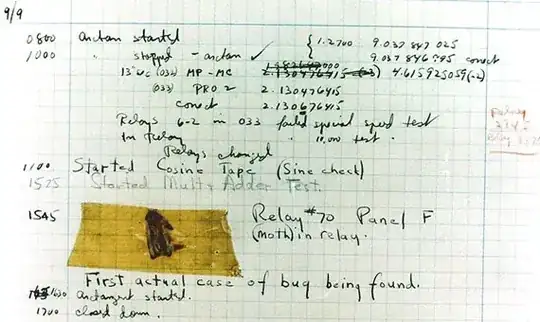 9/9
0800 Antan started { 1.2700 9.037 847 025
1000 " stopped - antan ✓ 9.037 846 995 correct
13"uc (032) MP - MC 2.130476415 (-3) 4.615925059(-2)
(033) PRO 2 2.130476415
correct 2.130676415
Relays 6-2 in 033 failed special speed test
In Relay " 10.000 test.
Relays changed
1100 Started Cosine Tape (Sine check)
1525 Started Multy Adder Test.
1545 Relay #70 Panel F
(moth) in relay.
First actual case of bug being found.
1630 antangent started.
1700 closed down.